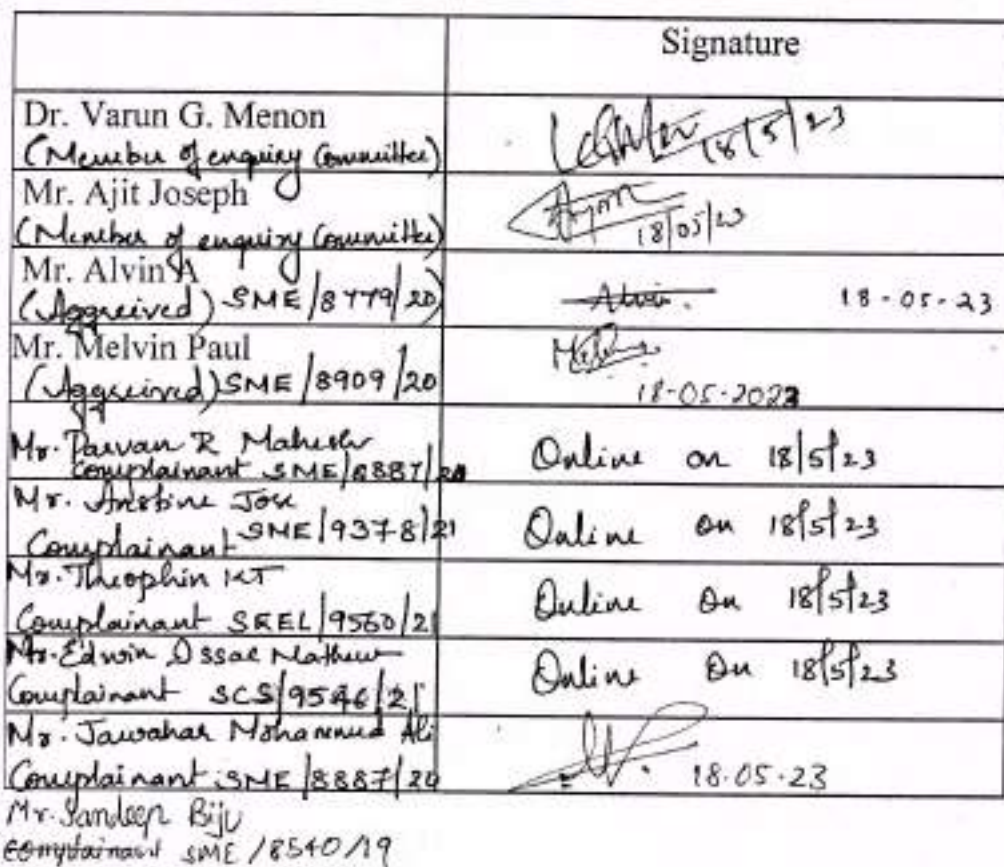 Signature
Dr. Varun G. Menon
(Member of enquiry Committee)
18/5/23
Mr. Ajit Joseph
(Member of enquiry Committee)
18/05/23
Mr. Alvin A
(Aggreived) SME/8779/20)
Alvin. 18-05-23
Mr. Melvin Paul
(Aggreived) SME/8909/20
18-05-2023
Mr. Pavan R Mahesh
Complainant SME/8887/20
Online on 18/5/23
Mr. Anstine Jose
Complainant SME/9378/21
Online on 18/5/23
Mr. Theophin KT
Complainant SEEL/9560/21
Online on 18/5/23
Mr. Edwin Ossac Mathew
Complainant SCS/9546/21
Online on 18/5/23
Mr. Jawahar Mohammed Ali
Complainant SME/8887/20
18.05.23
Mr. Sandeep Biju
Complainant SME/8540/19